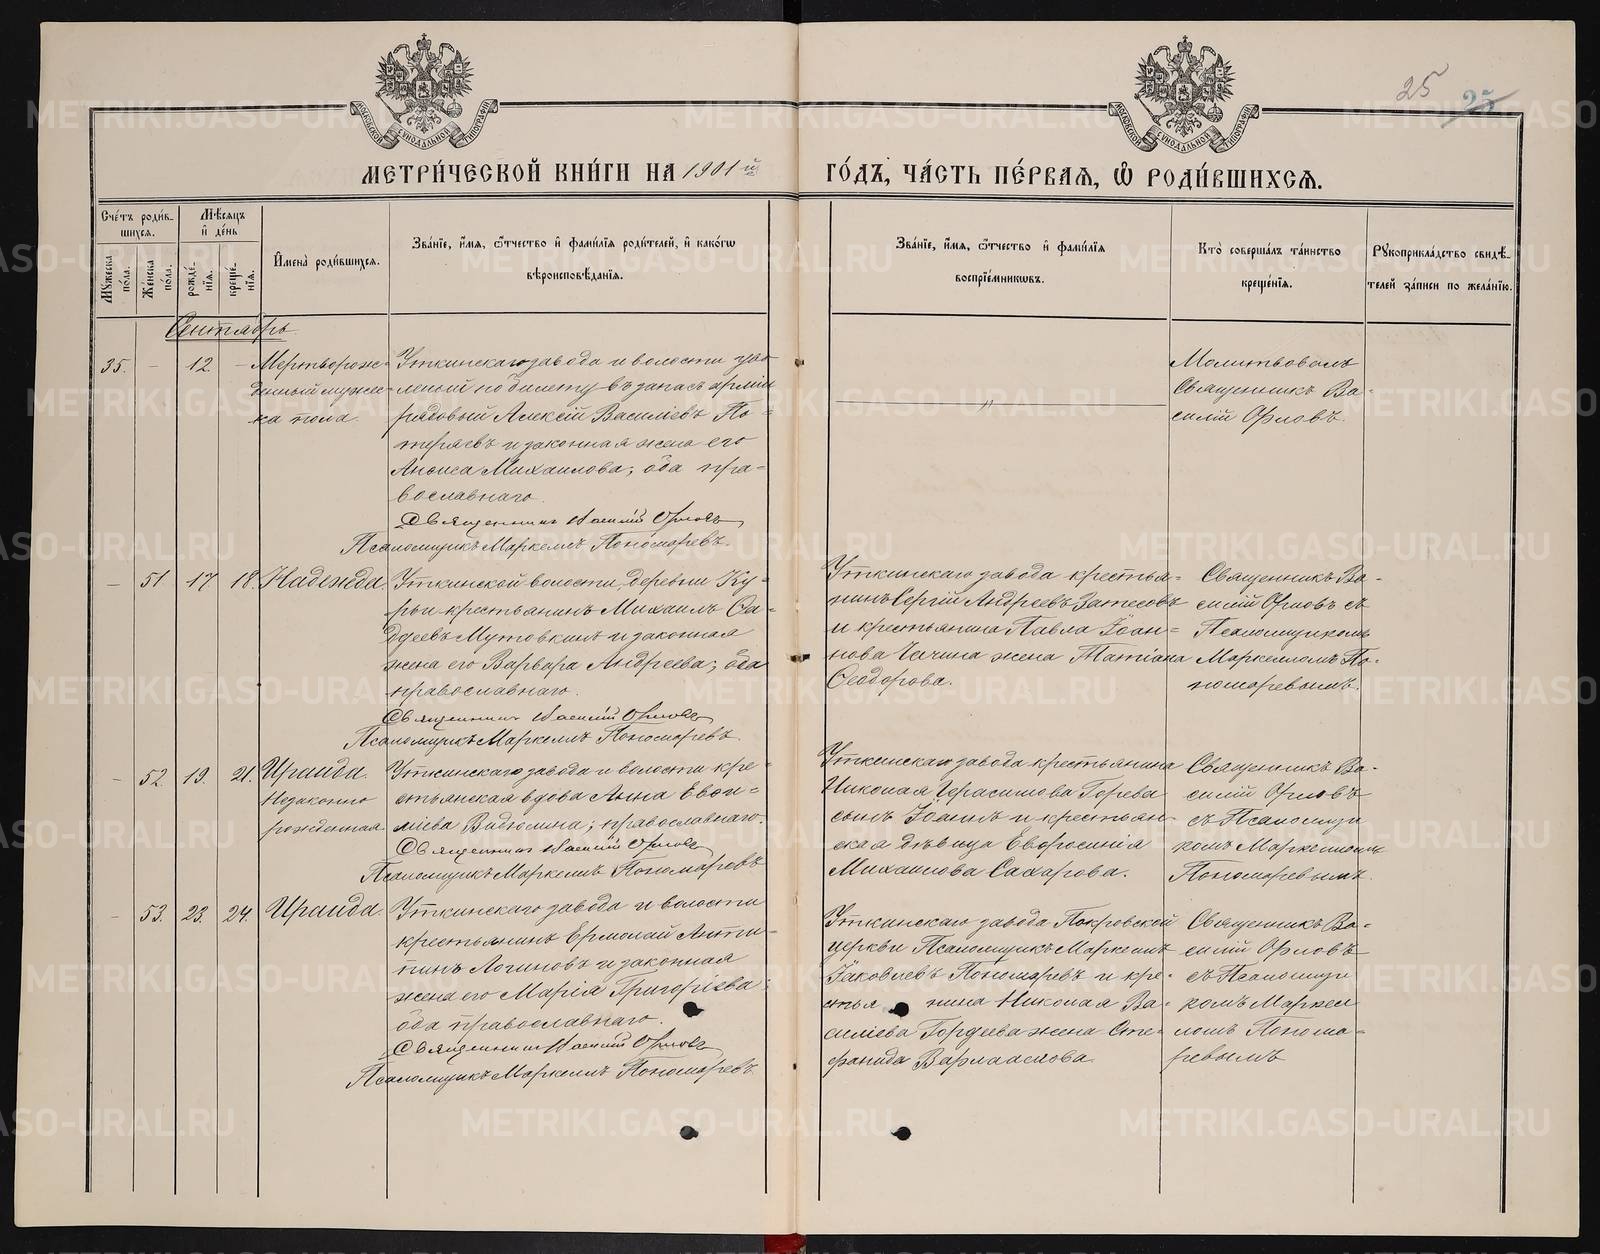 25 25
МОСКОВСКОЙ СУНОДАЛЬНОЙ ТИПОГРАФІИ
МОСКОВСКОЙ СУНОДАЛЬНОЙ ТИПОГРАФІИ
МЕТРИ́ЧЕСКОЙ КНИ́ГИ НА 1901 й
ГО́ДЪ, ЧА́СТЬ ПЕ́РВАѦ, Ѽ РОДИ́ВШИХСѦ.
Сче́тъ роди́в-
шихсѧ.
Мꙋ́жеска по́ла.
Же́нска по́ла.
Мѣ́сѧцъ
и҆ де́нь
рожде́-
нїѧ.
креще́-
нїѧ.
И҆мена̀ роди́вшихсѧ.
Зва́нїе, и҆́мѧ, ѻ҆́тчество и҆ фамі́лїѧ роди́телей, и҆ како́гѡ
вѣроисповѣ́данїѧ.
Зва́нїе, и҆́мѧ, ѻ҆́тчество и҆ фамі́лїѧ
воспрїе́мникѡвъ.
Кто̀ соверша́лъ та́инство
креще́нїѧ.
Рꙋкоприкла́дство свидѣ́-
телей за́писи по жела́нїю.
Сентябрь
35. - 12 - Мертворож-
денный мужес-
ка пола.
Уткинскаго завода и волости уво
леный по билету въ запасъ арміи
рядовый Алексѣй Василіевъ По-
теряевъ и законная жена его
Анѳиса Михаилова; оба пра-
вославнаго.
Священникъ Василій Орловъ
Псаломщикъ Маркеллъ Пономаревъ.
"
Молитвовалъ
Священникъ Ва-
силій Орловъ.
- 51 17 18. Надежда.
Уткинской волости, деревни Ку-
рьи крестьянинъ Михаилъ Ѳа-
ддеевъ Мутовкинъ и законная
жена его Варвара Андреева; оба
православнаго.
Священникъ Василій Орловъ
Псаломщикъ Маркеллъ Пономаревъ.
Уткинскаго завода крестья-
нинъ Сергій Андреевъ Затесовъ
и крестьянина Павла Іоан-
нова жена Татіана
Ѳеодорова.
Священникъ Ва-
силій Орловъ съ
Псаломщикомъ
Маркелломъ По-
номаревымъ.
- 52. 19. 21. Ираида.
Незаконно
рожденная
Уткинскаго завода и волости кре-
стьянская вдова Анна Евѳи-
міева Видюлина; православнаго.
Священникъ Василій Орловъ
Псаломщикъ Маркеллъ Пономаревъ
Уткинскаго завода крестьянина
Николая Герасимова Горева
сынъ Іоаннъ и крестьян-
ская дѣвица Евфросинія
Михаилова Сахарова.
Священникъ Ва-
силій Орловъ
съ Псаломщи
комъ Маркелломъ
Пономаревымъ.
- 53. 23. 24. Ираида.
Уткинскаго завода и волости
крестьянинъ Ермолай Анти-
пинъ Логиновъ и законная
жена его Марія Григоріева;
оба православнаго.
Священникъ Василій Орловъ
Псаломщикъ Маркеллъ Пономаревъ.
Уткинскаго завода Покровской
церкви Псаломщикъ Маркеллъ
Іаковлевъ Пономаревъ и кре-
стья нина Николая Ва-
силіева Гордеева жена Сте-
фанида Варлаамова.
Священникъ Ва-
силій Орловъ
съ Псаломщи
комъ Маркел
ломъ Понома-
ревымъ
METRIKI.GASO-URAL.RU